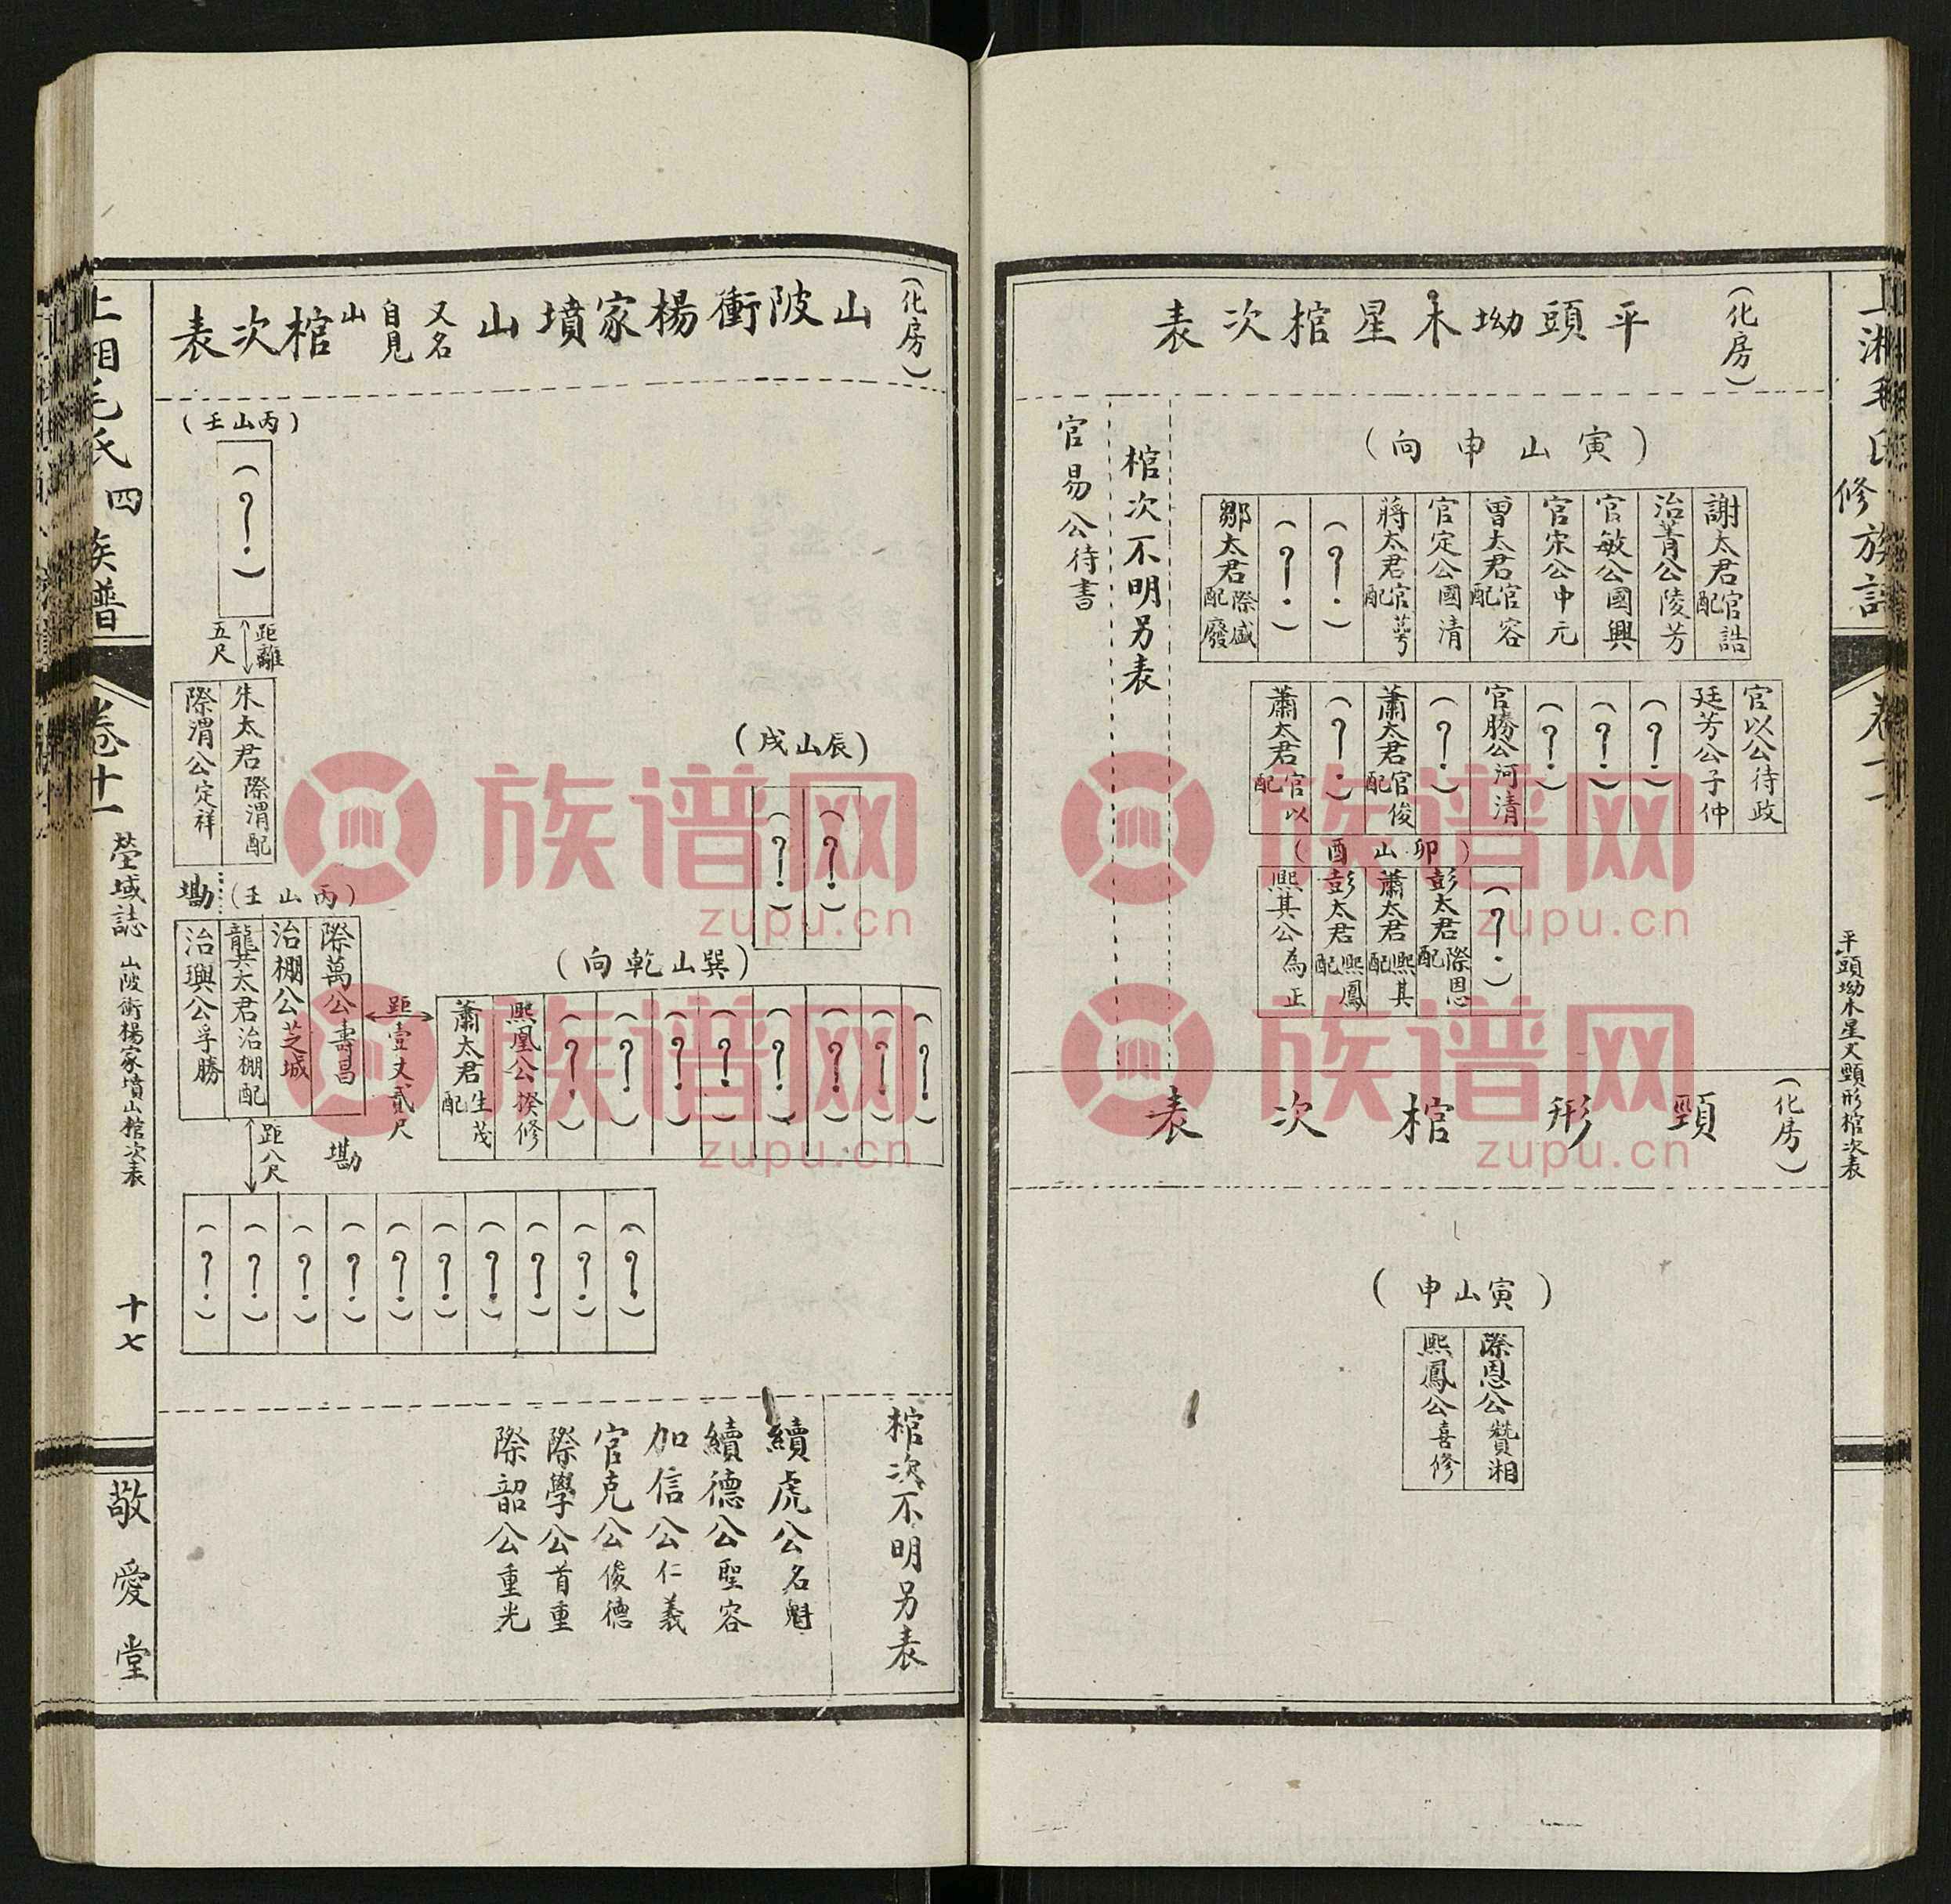 上湘毛氏四修族譜
卷十一
平頭坳木星丈頸形棺次表
(化房)
平頭坳木星棺次表
(寅山申向)
謝太君官誥配
治菁公陵芳
官敏公國興
官宋公中元
曾太君官容配
官定公國清
蔣太君官萼配
(?)
(?)
鄒太君際盛配廢
官以公待政
廷芳公子仲
(?)
(?)
(?)
官勝公河清
(?)
蕭太君官俊配
(?)
蕭太君官以配
(卯山酉)
(?)
彭太君際恩配
蕭太君熙其配
彭太君熙鳳配
熙其公為正
棺次不明另表
官易公待書
(化房)
頸形棺次表
(寅山申)
際恩公贊湘
熙鳳公喜修
(化房)
山陂衝楊家墳山又名自見山棺次表
(辰山戌)
(?)
(?)
(巽山乾向)
(?)
(?)
(?)
(?)
(?)
(?)
(?)
(?)
熙凰公揆修
蕭太君生茂配
距壹丈貳尺
(丙山壬)
(?)
距離五尺
朱太君際渭配
際渭公定祥
墈
(丙山壬)
際萬公壽昌
治棚公芝城
龔太君治棚配
治璵公孚勝
墈
距八尺
(?)
(?)
(?)
(?)
(?)
(?)
(?)
(?)
(?)
(?)
棺次不明另表
續虎公名魁
續德公聖容
加信公仁義
官克公俊德
際學公首重
際韶公重光
上湘毛氏四修族譜
卷十一
塋域誌
山陂衝楊家墳山棺次表
十七
敬愛堂
族谱网
zupu.cn
族谱网
zupu.cn
族谱网
zupu.cn
族谱网
zupu.cn